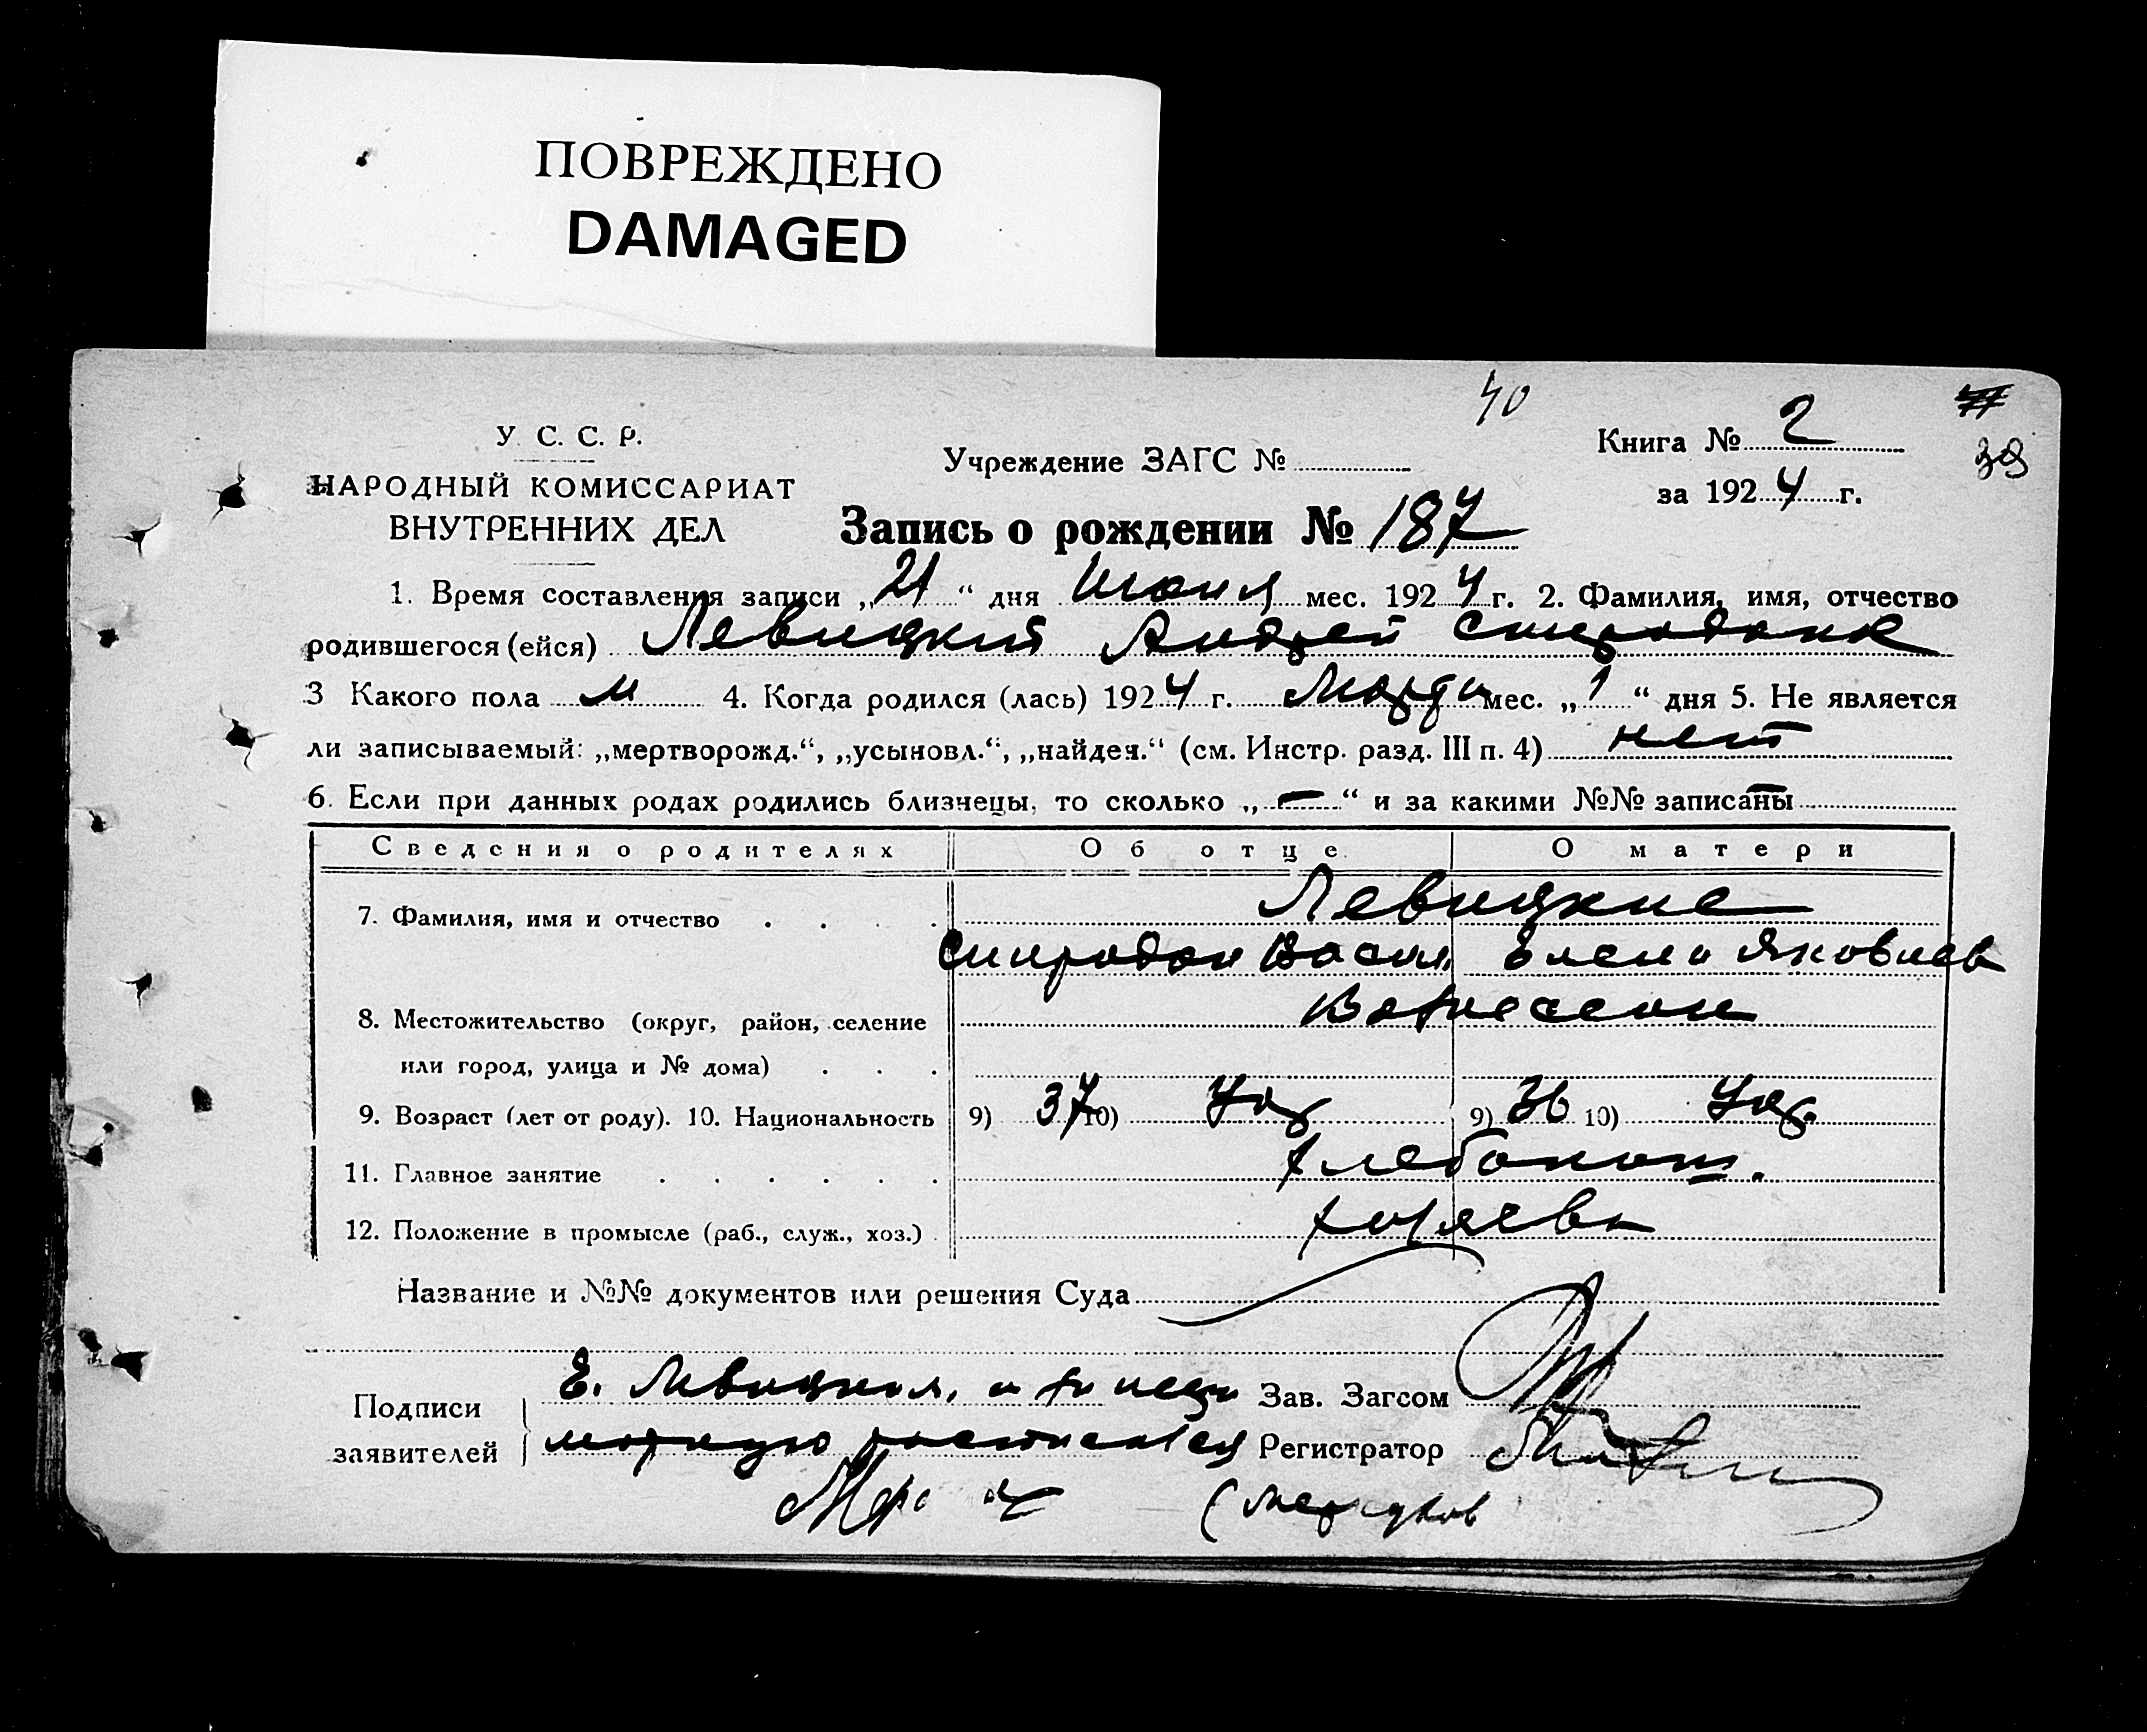 ПОВРЕЖДЕНО
DAMAGED
40
У. С. С. Р.
НАРОДНЫЙ КОМИССАРИАТ
ВНУТРЕННИХ ДЕЛ
Учреждение ЗАГС №
Книга № 2
39
за 1924 г.
Запись о рождении № 187
1. Время составления записи „21“ дня Июня мес. 1924 г. 2. Фамилия, имя, отчество
родившегося (ейся) Левицкий Андрей Спиридонов
3 Какого пола м 4. Когда родился (лась) 1924 г. Марта мес. „1“ дня 5. Не является
ли записываемый: „мертворожд.“, „усыновл.“, „найден.“ (см. Инстр. разд. III п. 4) нет
6. Если при данных родах родились близнецы, то сколько „—“ и за какими №№ записаны —
Сведения о родителях Об отце О матери
7. Фамилия, имя и отчество Левицкие
Спиридон Васил. Елена Яковлев
8. Местожительство (округ, район, селение
или город, улица и № дома)
9. Возраст (лет от роду). 10. Национальность 9) 37 10) Укр 9) 36 10) Укр.
11. Главное занятие хлебопаш.
12. Положение в промысле (раб., служ., хоз.) хозяева
Название и №№ документов или решения Суда
Подписи заявителей
Е. Левицкая, а за негра
мотную расписался
Зав. Загсом
Регистратор